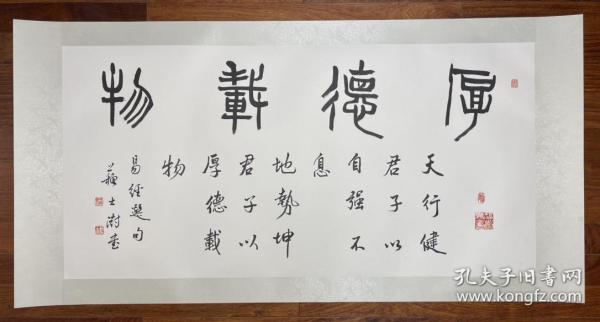 厚德載物
天行健
君子以
自強不
息
地勢坤
君子以
厚德載
物
易經選句
蘇士澍書
孔夫子旧书网
www.kongfz.com